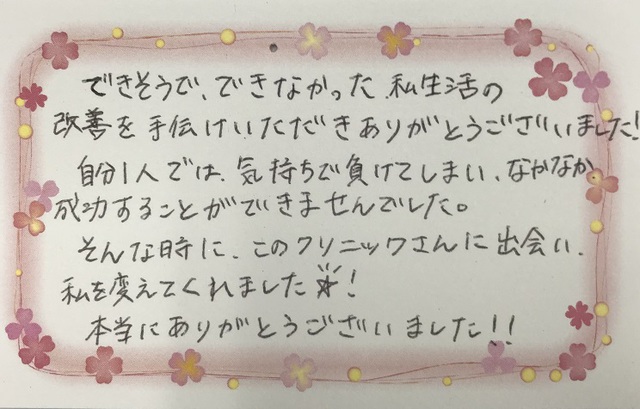 できそうで、できなかった 私生活の
改善を手伝けいただきありがとうございました!
自分1人では、気持ちで負けてしまい、なかなか
成功することができませんでした。
そんな時に、このクリニックさんに出会い、
私を変えてくれました☀!
本当にありがとうございました!!